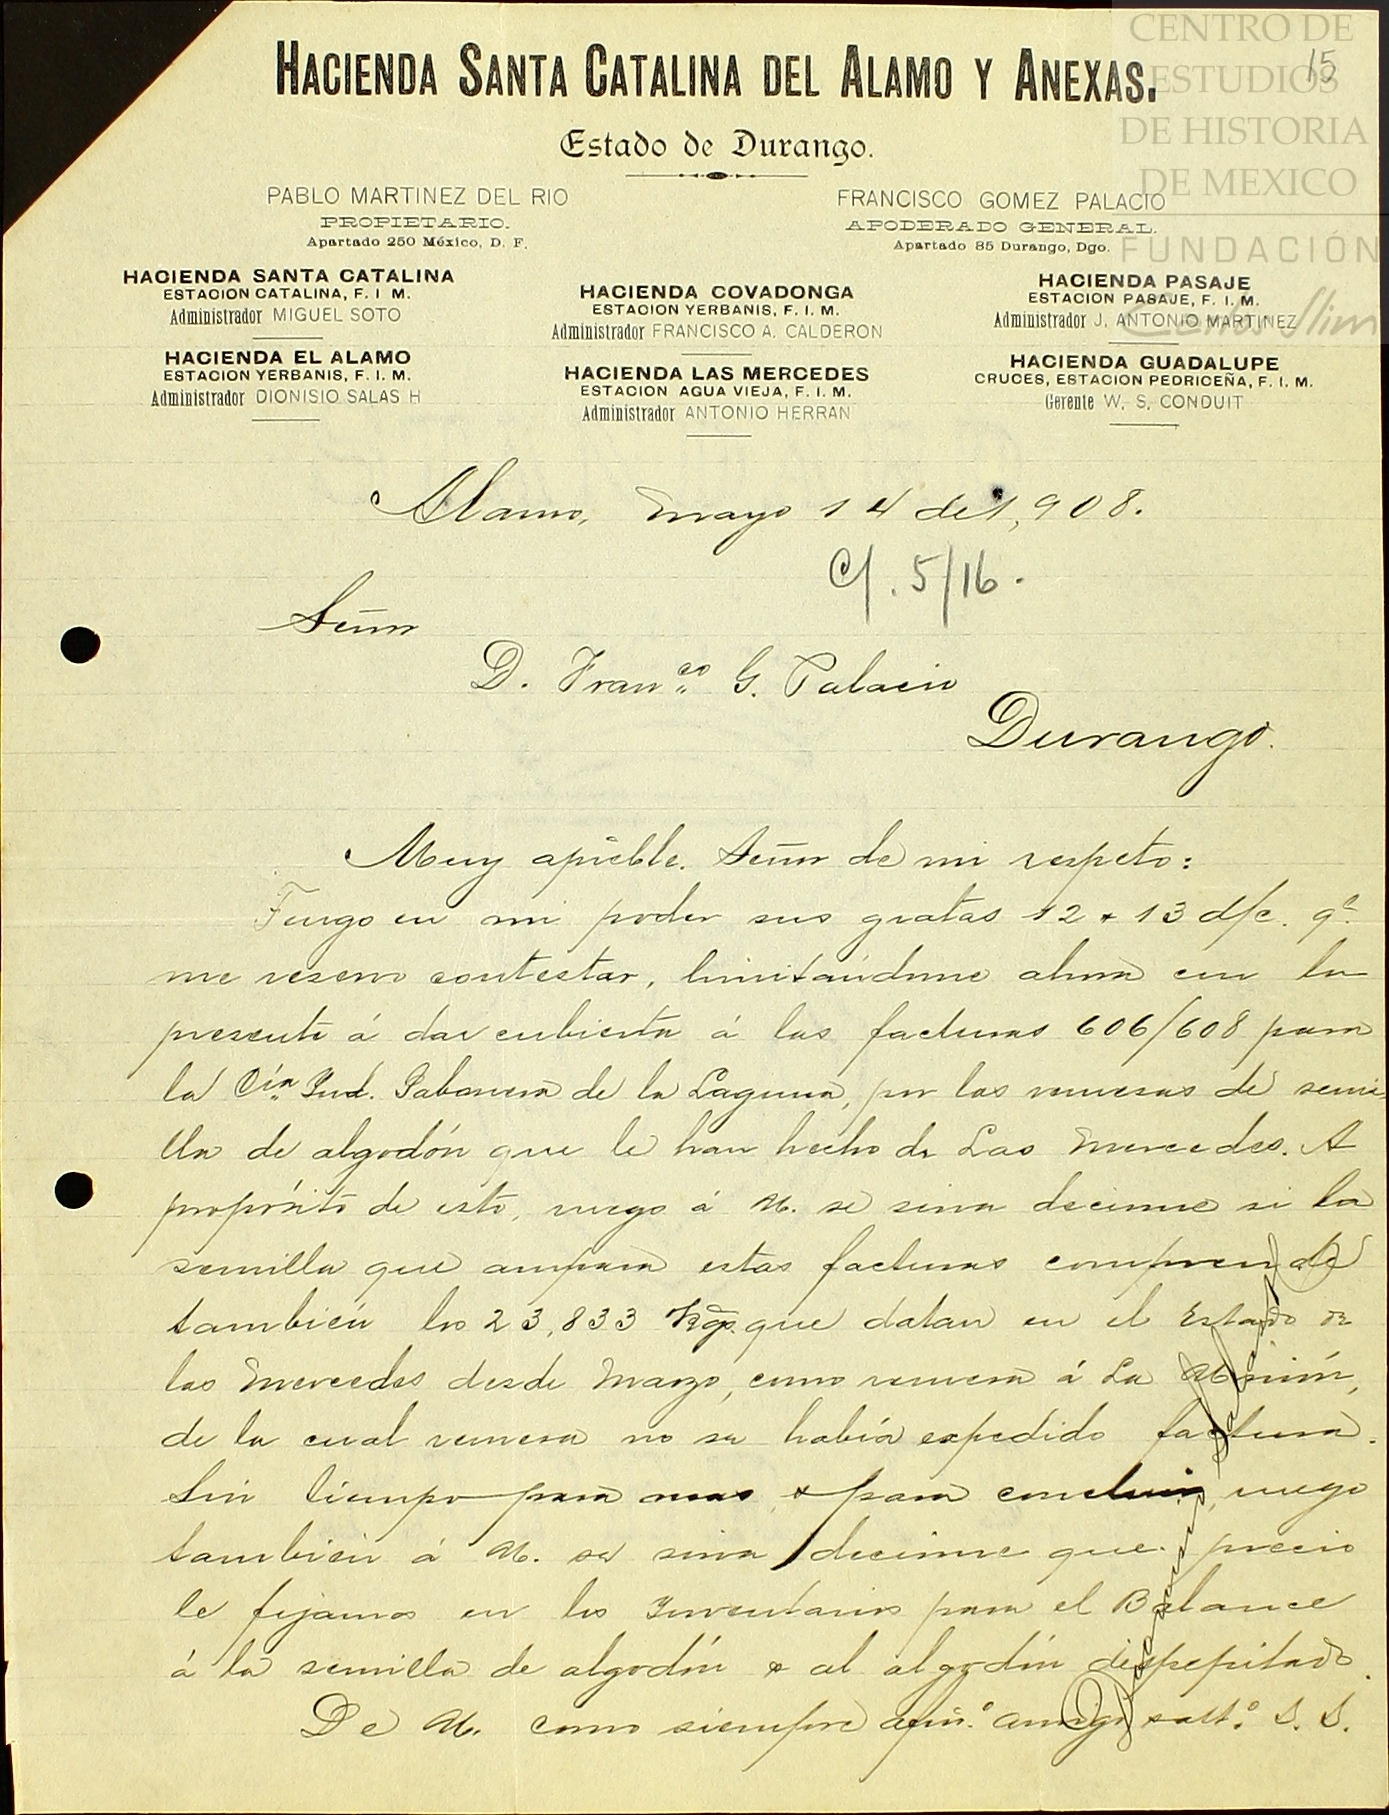 CENTRO DE
ESTUDIOS
DE HISTORIA
DE MEXICO
FUNDACIÓN
Carlos Slim
15
HACIENDA SANTA CATALINA DEL ALAMO Y ANEXAS.
Estado de Durango.
PABLO MARTINEZ DEL RIO
PROPIETARIO.
Apartado 250 México, D. F.
FRANCISCO GOMEZ PALACIO
APODERADO GENERAL.
Apartado 85 Durango, Dgo.
HACIENDA SANTA CATALINA
ESTACION CATALINA, F. I M.
Administrador MIGUEL SOTO
HACIENDA COVADONGA
ESTACION YERBANIS, F. I. M.
Administrador FRANCISCO A. CALDERON
HACIENDA PASAJE
ESTACION PASAJE, F. I. M.
Administrador J. ANTONIO MARTINEZ
HACIENDA EL ALAMO
ESTACION YERBANIS, F. I. M.
Administrador DIONISIO SALAS H
HACIENDA LAS MERCEDES
ESTACION AGUA VIEJA, F. I. M.
Administrador ANTONIO HERRAN
HACIENDA GUADALUPE
CRUCES, ESTACION PEDRICEÑA, F. I. M.
Gerente W. S. CONDUIT
Alamo, Mayo 14 de 1,908.
C/. 5/16.
Señor
D. Franco G. Palacio
Durango.
Muy apreble. Señor de mi respeto:
Tengo en mi poder sus gratas 12 y 13 d/c. qe.
me reservo contestar, limitándome ahora con la
presente á dar cubierta á las facturas 606/608 para
la Cía. Ind. Jabonera de la Laguna, por las remesas de semi
lla de algodón que le han hecho de Las Mercedes. A
propósito de esto, ruego á U. se sirva decirme si la
semilla que ampara estas facturas comprende
también los 23,833 Kgs. que datan en el Estado de
las Mercedes desde Marzo, como remesa á La Unión,
de la cual remesa no se había expedido factura.
Sin tiempo para mas y para concluir, ruego
también á U. se sirva decirme que precio
le fijamos en los Inventarios para el Balance
á la semilla de algodón y al algodón despepitado.
De U. como siempre afmo. amigo y atto. S. S.